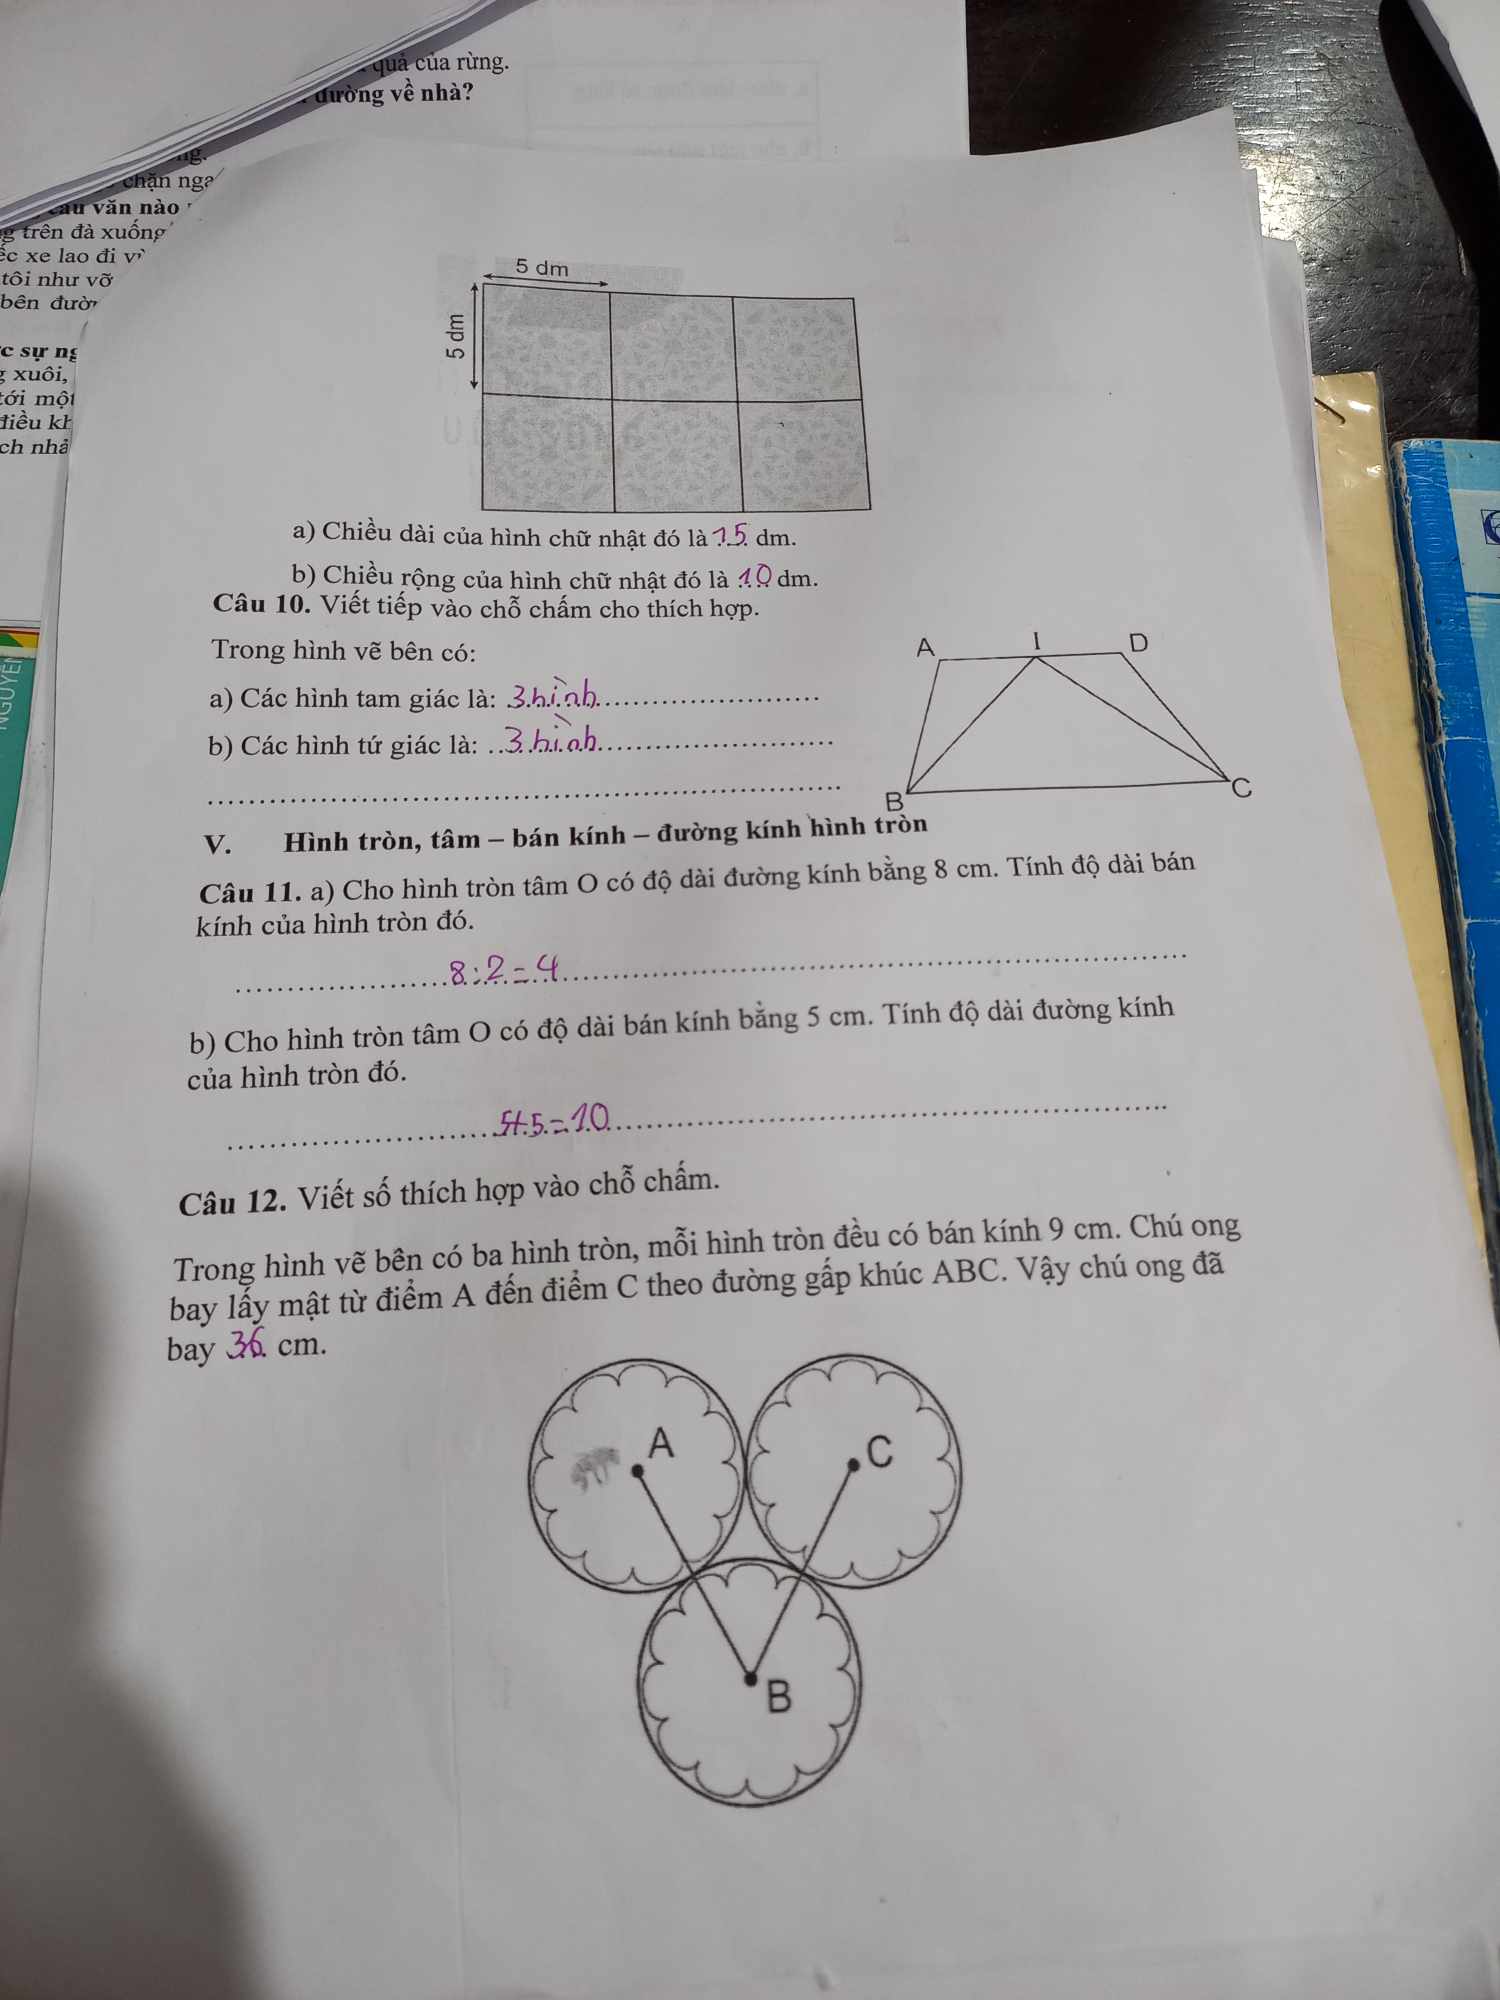 quả của rừng.
đường về nhà?
chặn nga
câu văn nào
g trên đà xuống
ếc xe lao đi vì
tôi như vỡ
bên đườn
c sự ng
g xuôi,
tới một
điều kh
ch nhả
NGUYỄN
5 dm
5 dm
a) Chiều dài của hình chữ nhật đó là 15 dm.
b) Chiều rộng của hình chữ nhật đó là 10 dm.
Câu 10. Viết tiếp vào chỗ chấm cho thích hợp.
Trong hình vẽ bên có:
a) Các hình tam giác là: 3 hình
b) Các hình tứ giác là: 3 hình
A I D
B C
V. Hình tròn, tâm – bán kính – đường kính hình tròn
Câu 11. a) Cho hình tròn tâm O có độ dài đường kính bằng 8 cm. Tính độ dài bán
kính của hình tròn đó.
8:2=4
b) Cho hình tròn tâm O có độ dài bán kính bằng 5 cm. Tính độ dài đường kính
của hình tròn đó.
5+5=10
Câu 12. Viết số thích hợp vào chỗ chấm.
Trong hình vẽ bên có ba hình tròn, mỗi hình tròn đều có bán kính 9 cm. Chú ong
bay lấy mật từ điểm A đến điểm C theo đường gấp khúc ABC. Vậy chú ong đã
bay 36 cm.
A C
B